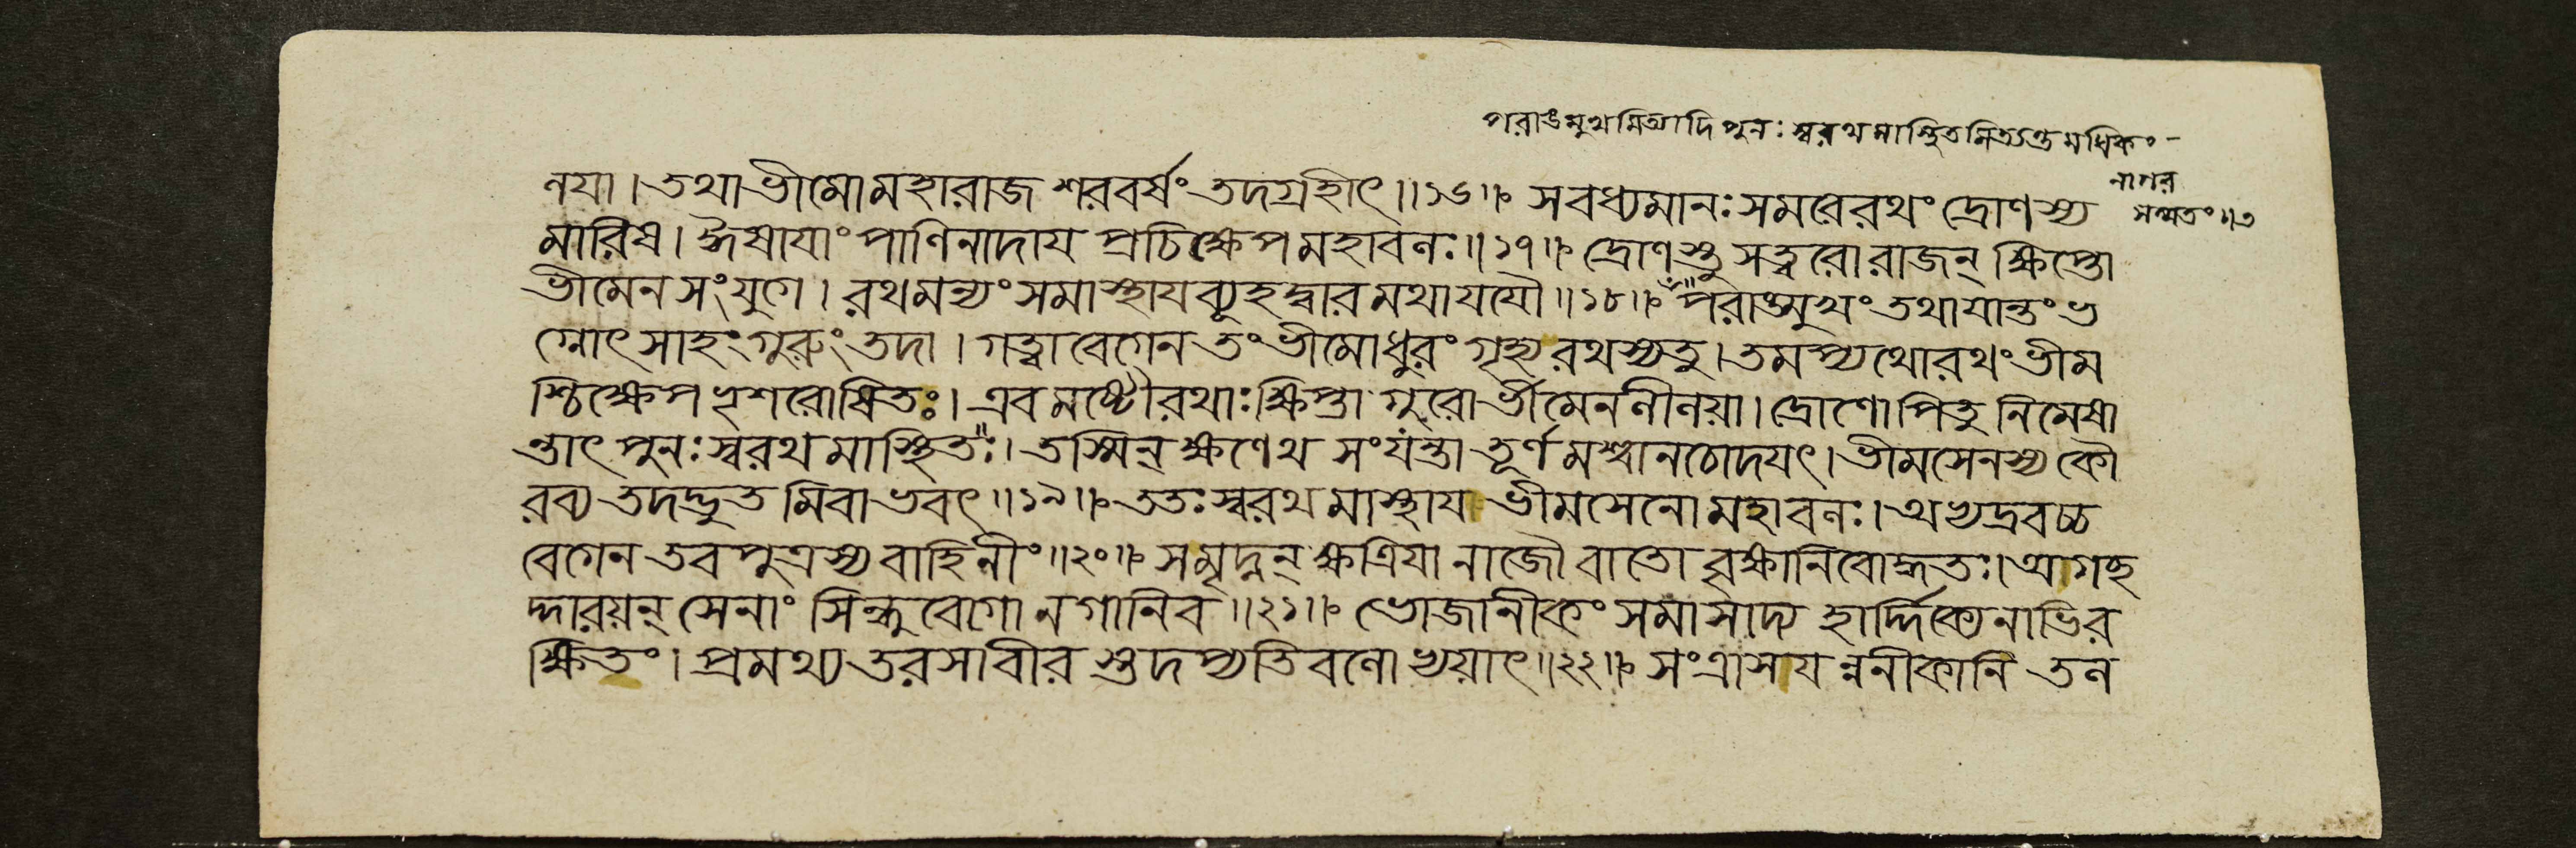 পরাঙমুখমিত্যাদি পুনঃ স্বরথমাস্থিতমিত্যন্তমধিকং-
নাগর
সম্মতং॥৩
নযা। তথা ভীমো মহারাজ শরবর্ষং তদগ্রহীৎ॥১৬॥ স বধ্যমানঃ সমরে রথং দ্রোণস্য
মারিষ। ঈষাযাং পাণিনাদায প্রচিক্ষেপ মহাবলঃ॥১৭॥ দ্রোণস্তু সত্বরো রাজন্ ক্ষিপ্তো
ভীমেন সংযুগে। রথমন্যং সমাস্থায ব্যূহদ্বারমথাযযৌ॥১৮॥ পরাঙ্মুখং তথাযান্তং ভ
গ্নোৎসাহং গুরুং তদা। গত্বা বেগেন তং ভীমো ধুরং গৃহ্য রথস্য তু। তমপ্যথো রথং ভীম
শ্চিক্ষেপ ভৃশরোষিতঃ। এবমষ্টৌ রথাঃ ক্ষিপ্তা গুরো র্ভীমেন লীলয়া। দ্রোণোপি তু নিমেষা
ন্তাৎ পুনঃ স্বরথমাস্থিতঃ। তস্মিন্ ক্ষণেথ সংযন্তা তূর্ণমশ্বানচোদযৎ। ভীমসেনস্য কৌ
রব্য তদদ্ভুতমিবাভবৎ॥১৯॥ ততঃ স্বরথমাস্থায ভীমসেনো মহাবলঃ। অভ্যদ্রবচ্চ
বেগেন তব পুত্রস্য বাহিনীং॥২০॥ স মৃদ্নন্ ক্ষত্রিযানাজৌ বাতো বৃক্ষানিবোদ্ধতঃ। আগচ্ছ
দ্দারয়ন্ সেনাং সিন্ধুবেগো নগানিব॥২১॥ ভোজানীকং সমাসাদ্য হার্দ্দিক্যেনাভির
ক্ষিতং। প্রমথ্য তরসা বীর স্তদপ্যতিবলোভ্যয়াৎ॥২২॥ সংত্রাসযন্ননীকানি তল